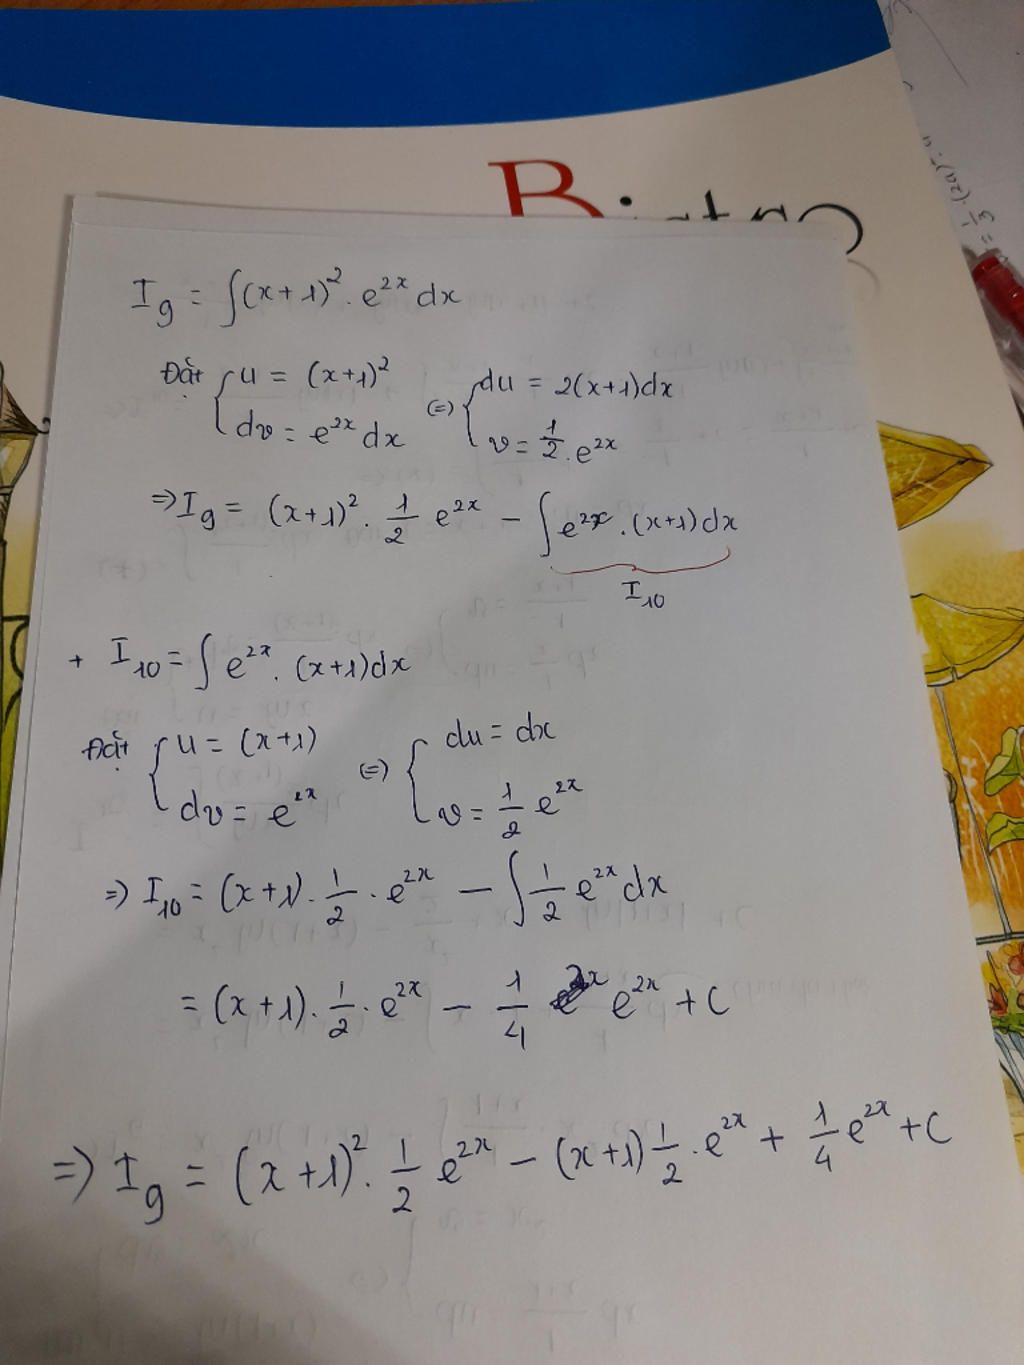 Bistro
I₉ = ∫(x+1)². e²ˣ dx
Đặt { u = (x+1)² (=) { du = 2(x+1)dx
dv = e²ˣ dx v = 1/2 . e²ˣ
=> I₉ = (x+1)² . 1/2 e²ˣ − ∫ e²ˣ . (x+1) dx
I₁₀
+ I₁₀ = ∫ e²ˣ . (x+1)dx
Đặt { u = (x+1) (=) { du = dx
dv = e²ˣ v = 1/2 e²ˣ
=> I₁₀ = (x+1) . 1/2 . e²ˣ − ∫ 1/2 e²ˣ dx
= (x+1) . 1/2 . e²ˣ − 1/4 e²ˣ + C
=> I₉ = (x+1)² . 1/2 e²ˣ − (x+1) 1/2 . e²ˣ + 1/4 e²ˣ + C